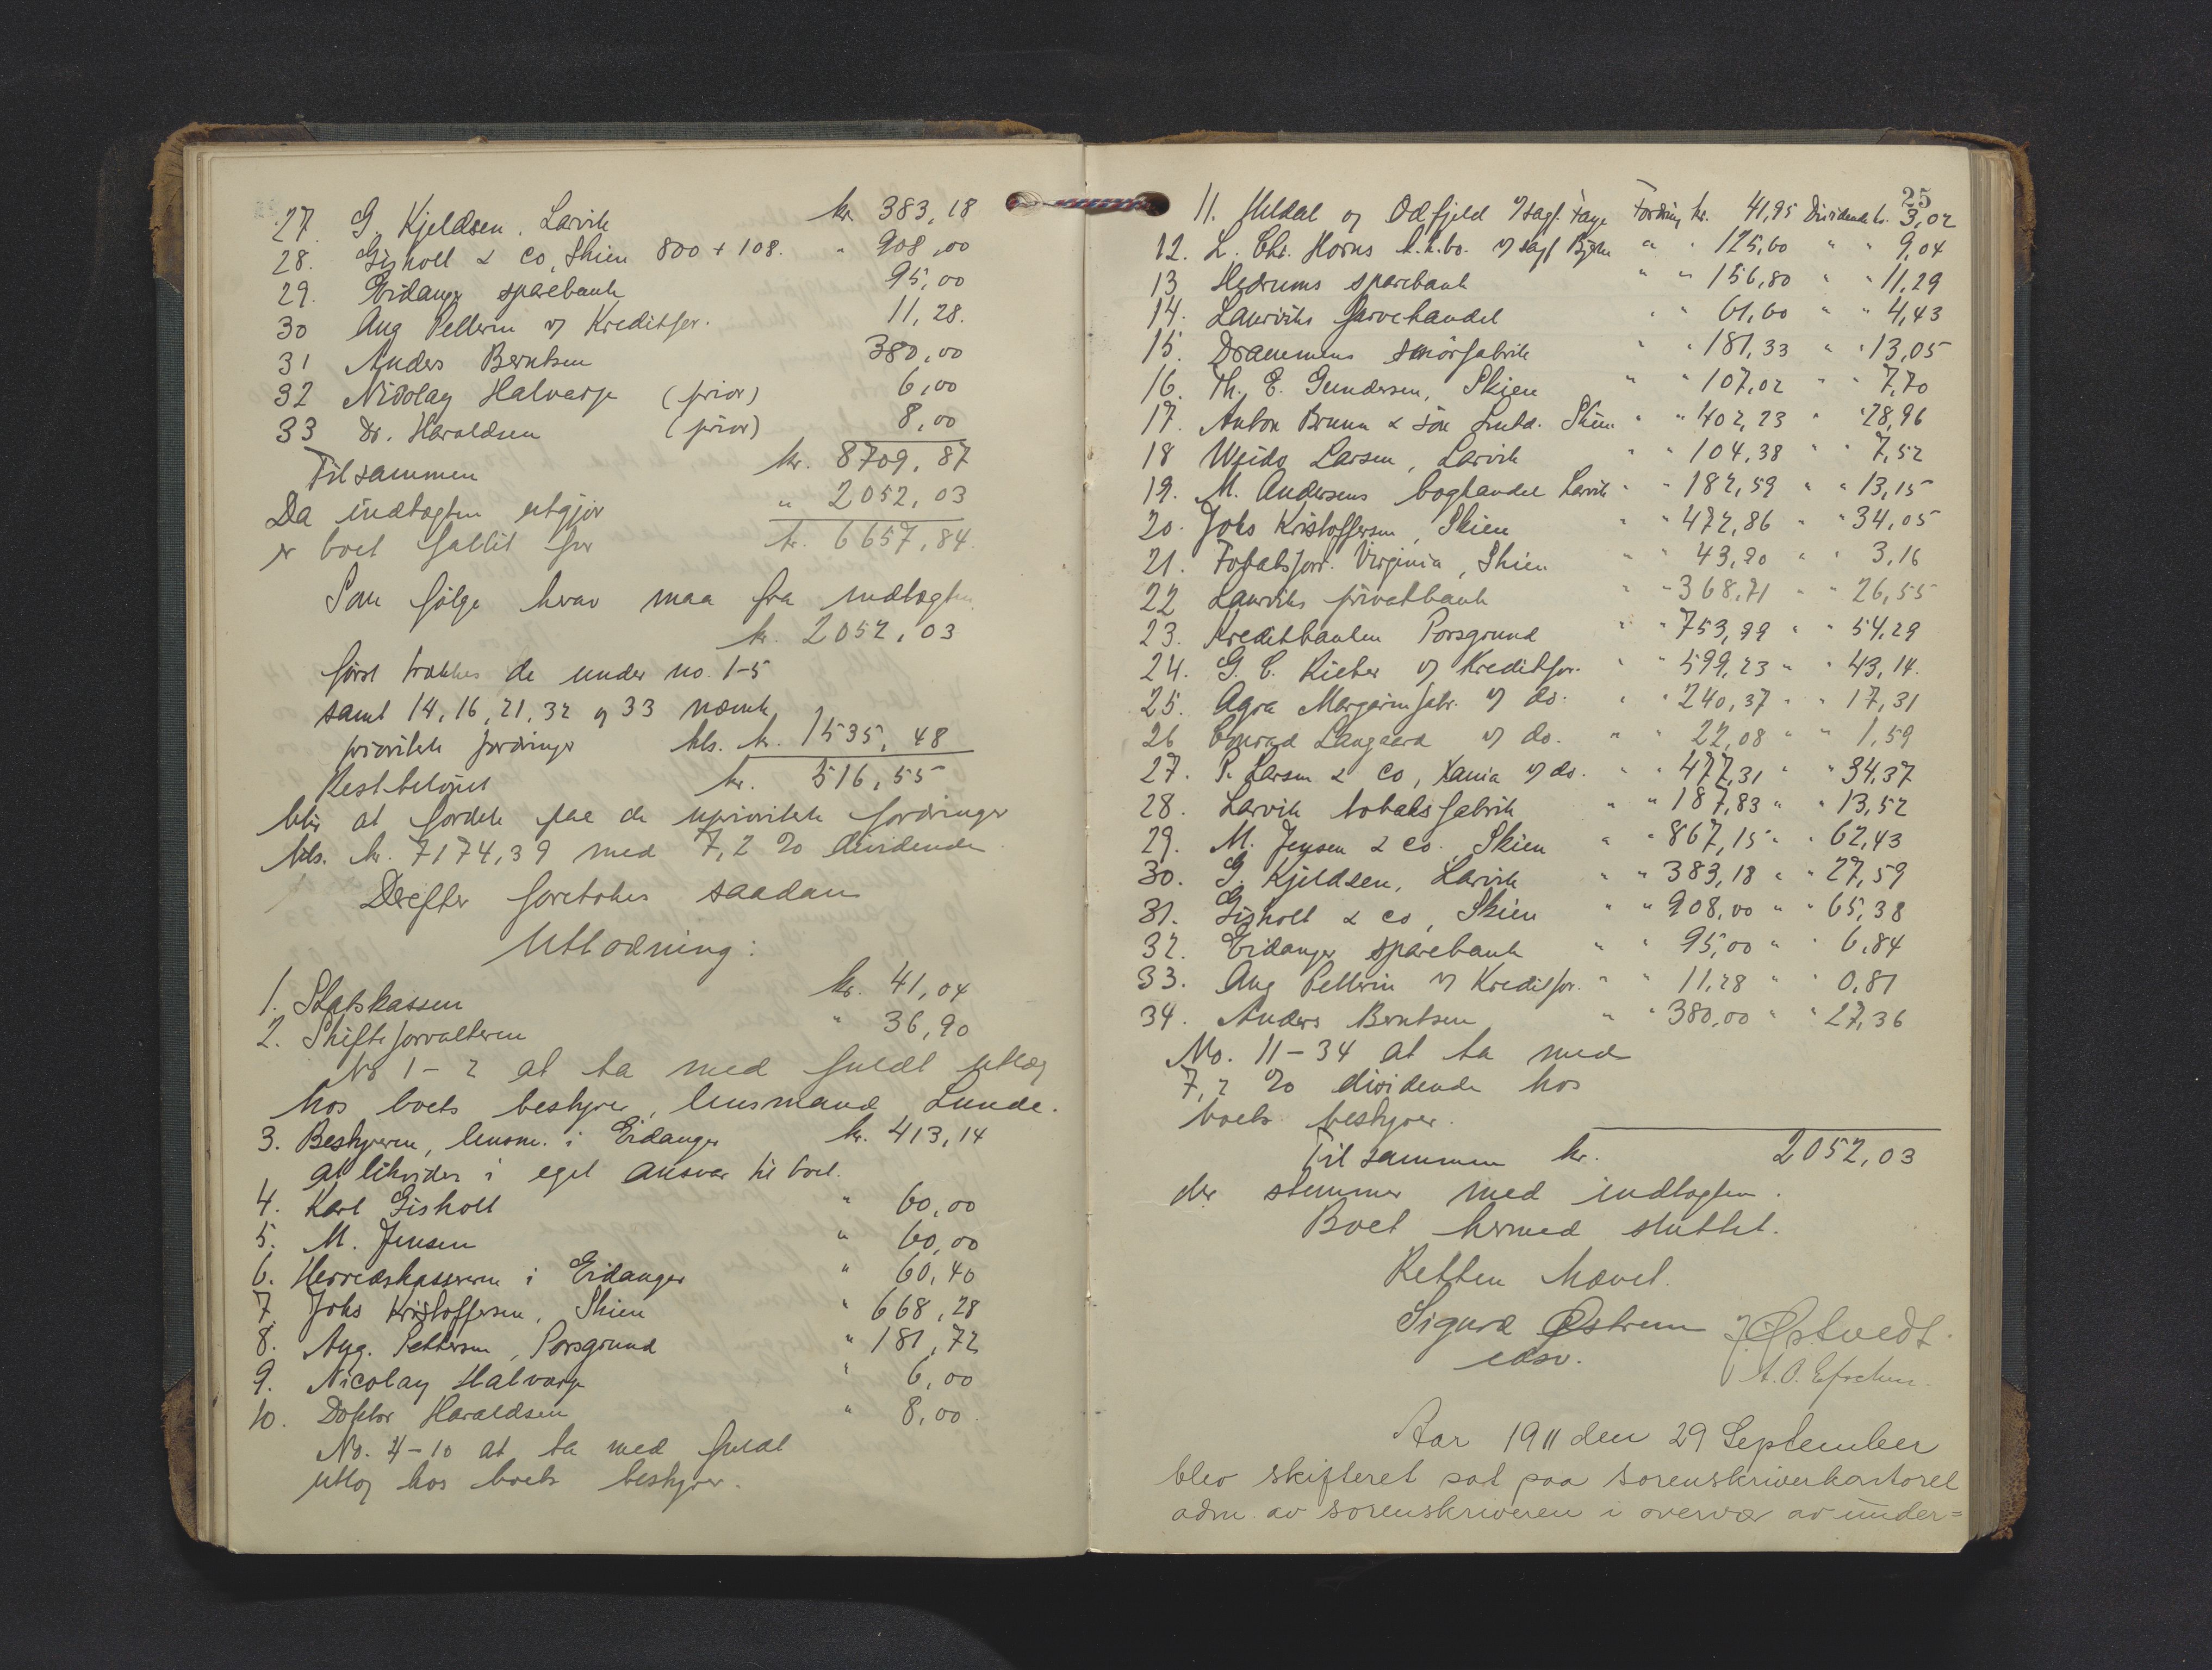 27. G. Kjeldsen, Larvik kr. 383,18
28. Gisholt & Co, Skien 800 + 108. " 908,00
29. Eidanger sparebank 95,00
30 Aug Pellerin v/ Kreditfor. 11,28.
31 Anders Berntsen 380,00
32 Nicolay Halvarp (prior) 6,00
33 Dr. Haraldsen (prior) 8,00
Tilsammen kr. 8709,87
Da indtægten utgjør " 2052,03
er boet fallit for kr. 6657,84.
Som følge herav maa fra indtægten
kr. 2052,03
först trækkes de under no. 1-5
samt 14, 16, 21, 32 og 33 nævnte
prioritete fordringer tils. kr. 1535,48
Restbelöpet kr. 516,55
blir at fordele paa de uprioritete fordringer
tils. kr. 7174,39 med 7,2 % dividende.
Derefter foretokes saadan
Utlodning:
1. Statskassen kr. 41,04
2. Skifteforvalteren " 36,90
No 1-2 at ta med fuldt utlæg
hos boets bestyrer, lensmand Lunde.
3. Bestyreren, lensm. i Eidanger kr. 413,14
at likvider i eget ansvar til boet.
4. Karl Gisholt " 60,00
5. M. Jensen " 60,00
6. Herredskassereren i Eidanger " 60,40
7. Johs Kristoffersen, Skien " 668,28
8. Aug. Pettersen, Porsgrund " 181,72
9. Nicolay Halvarp " 6,00
10. Doktor Haraldsen " 8,00.
No. 4-10 at ta med fuldt
utlæg hos boets bestyrer.
25
11. Meldal og Odfjeld v/ sagf. Faye Fordring kr. 41,95 Dividende kr. 3,02
12. L. Chr. Horns k.k.bo. v/ sagf " " 125,60 " " 9,04
13 Hedrums sparebank " " 156,80 " " 11,29
14. Laurviks farvehandel " " 61,60 " " 4,43
15. Drammens smörfabrik " " 181,33 " " 13,05
16. Th. E. Gundersen, Skien " " 107,02 " " 7,70
17. Anton Bruun & sön Skien " " 402,23 " " 28,96
18 Larsen, Larvik " " 104,38 " " 7,52
19. M. Andersens boghandel Larvik " " 182,59 " " 13,15
20. Johs Kristoffersen, Skien " " 472,86 " " 34,05
21. Tobaksforr. Virginia, Skien " " 43,90 " " 3,16
22 Laurviks privatbank " " 368,71 " " 26,55
23. Kreditbanken Porsgrund " " 753,99 " " 54,29
24. G. C. Rieber v/ Kreditfor. " " 599,23 " " 43,14.
25. Agra Margarinfabr. v/ do. " " 240,37 " " 17,31
26 Conrad Langaard v/ do. " " 22,08 " " 1,59
27. P. Larsen & Co, Xania v/ do. " " 477,31 " " 34,37
28. Larvik tobaksfabrik " " 187,83 " " 13,52
29. M. Jensen & Co. Skien " " 867,15 " " 62,43
30. G. Kjeldsen, Larvik " " 383,18 " " 27,59
31. Gisholt & Co, Skien " " 908,00 " " 65,38
32. Eidanger sparebank " " 95,00 " " 6,84
33. Aug Pellerin v/ Kreditfor. " " 11,28 " " 0,81
34. Anders Berntsen " " 380,00 " " 27,36
No. 11-34 at ta med
7,2 % dividende hos
boets bestyrer.
Tilsammen kr. 2052,03
der stemmer med indtægten.
Boet hermed sluttet.
Retten hævet.
Sigurd Østrem J. Østvedt.
edsv.
Aar 1911 den 29 September
blev skifteret sat paa sorenskriverkontoret
adm. av sorenskriveren i overvær av under=